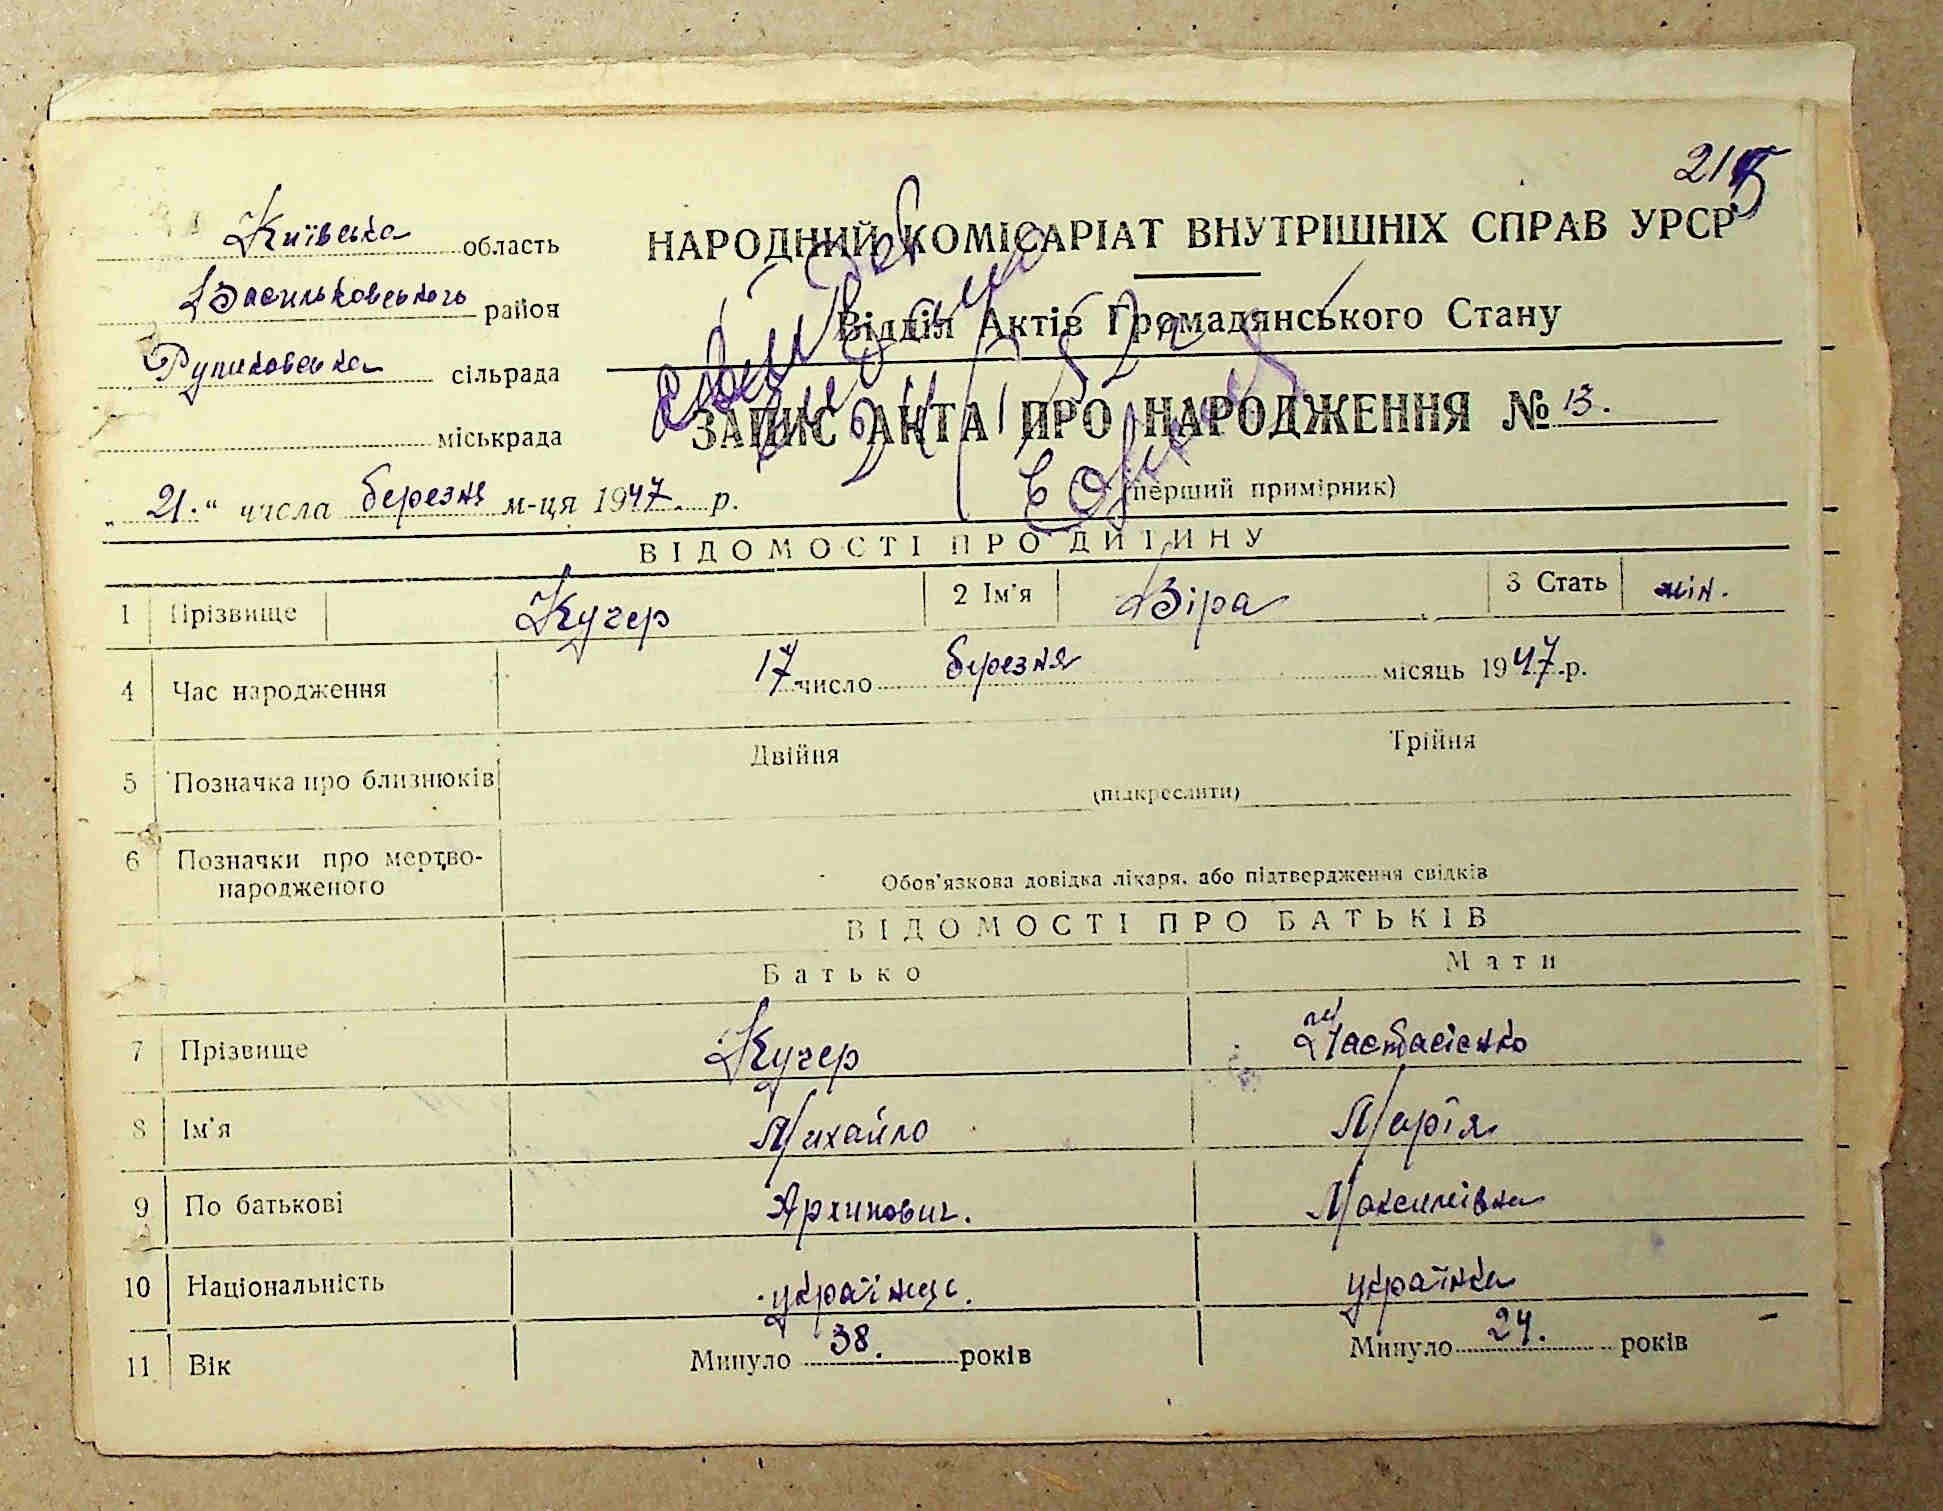 215
Київська область
НАРОДНИЙ КОМІСАРІАТ ВНУТРІШНІХ СПРАВ УРСР
Васильковського район
Відділ Актів Громадянського Стану
Руликовська сільрада
міськрада
ЗАПИС АКТА ПРО НАРОДЖЕННЯ № 13.
(перший примірник)
„21.“ числа березня м-ця 1947. р.
ВІДОМОСТІ ПРО ДИТИНУ
1 Прізвище Кучер 2 Ім'я Віра 3 Стать жін.
4 Час народження 17 число березня місяць 1947.р.
5 Позначка про близнюків Двійня Трійня
(підкреслити)
6 Позначки про мертво-
народженого
Обов'язкова довідка лікаря, або підтвердження свідків
ВІДОМОСТІ ПРО БАТЬКІВ
Батько Мати
7 Прізвище Кучер Настасієнко
8 Ім'я Михайло Марія
9 По батькові Архипович. Максимівна
10 Національність українець. українка
11 Вік Минуло 38. років Минуло 24. років